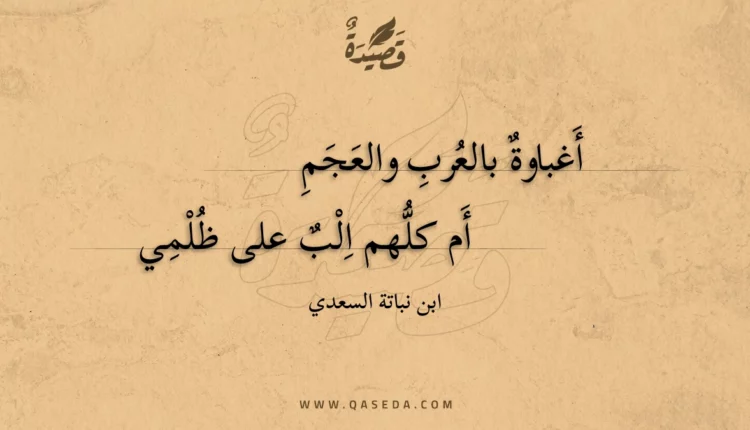 قَصِيْدَةٌ
أَغباوةٌ بالعُربِ والعَجَمِ
أَم كلُّهم اِلْبٌ على ظُلْمِي
ابن نباتة السعدي
WWW.QASEDA.COM